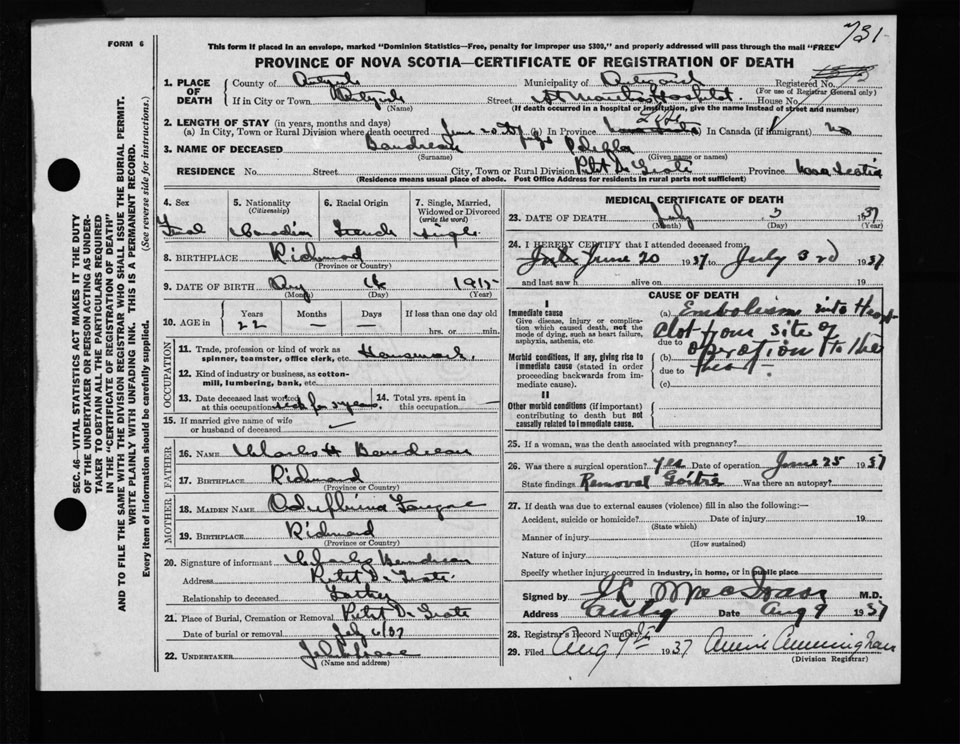 731
FORM 6
This form if placed in an envelope, marked "Dominion Statistics—Free, penalty for improper use $300," and properly addressed will pass through the mail "FREE"
PROVINCE OF NOVA SCOTIA—CERTIFICATE OF REGISTRATION OF DEATH
SEC. 46—VITAL STATISTICS ACT MAKES IT THE DUTY
OF THE UNDERTAKER OR PERSON ACTING AS UNDER-
TAKER TO OBTAIN ALL THE PARTICULARS REQUIRED
IN THE "CERTIFICATE OF REGISTRATION OF DEATH"
AND TO FILE THE SAME WITH THE DIVISION REGISTRAR WHO SHALL ISSUE THE BURIAL PERMIT.
WRITE PLAINLY WITH UNFADING INK. THIS IS A PERMANENT RECORD.
Every item of information should be carefully supplied. (See reverse side for instructions.)
1. PLACE OF DEATH County of Municipality of Antigonish Registered No.
(For use of Registrar General only)
If in City or Town Street St Martha's Hospital House No.
(Name) (If death occurred in a hospital or institution, give the name instead of street and number)
2. LENGTH OF STAY (in years, months and days)
(a) In City, Town or Rural Division where death occurred June 20 to (b) In Province Life In Canada (if immigrant) no
3. NAME OF DECEASED Boudreau
(Surname) (Given name or names)
RESIDENCE No. Street City, Town or Rural Division Petit De Grat Province Nova Scotia
(Residence means usual place of abode. Post Office Address for residents in rural parts not sufficient)
4. Sex 5. Nationality (Citizenship) 6. Racial Origin 7. Single, Married, Widowed or Divorced (write the word)
Canadian French Single
8. BIRTHPLACE Richmond
(Province or Country)
9. DATE OF BIRTH 1915
(Month) (Day) (Year)
10. AGE in Years Months Days If less than one day
22 — — hrs. or min.
OCCUPATION
11. Trade, profession or kind of work as spinner, teamster, office clerk, etc. Housework
12. Kind of industry or business, as cotton-mill, lumbering, bank, etc.
13. Date deceased last worked at this occupation sick for 2 years 14. Total yrs. spent in this occupation —
15. If married give name of wife or husband of deceased —
FATHER
16. NAME Charles H Boudreau
17. BIRTHPLACE Richmond
(Province or Country)
MOTHER
18. MAIDEN NAME
19. BIRTHPLACE Richmond
(Province or Country)
20. Signature of informant Charles Boudreau
Address Petit De Grat
Relationship to deceased Father
21. Place of Burial, Cremation or Removal Petit De Grat
Date of burial or removal July 6/37
22. UNDERTAKER
(Name and address)
MEDICAL CERTIFICATE OF DEATH
23. DATE OF DEATH July 3 1937
(Month) (Day) (Year)
24. I HEREBY CERTIFY that I attended deceased from
June 20 1937 to July 3rd 1937
and last saw h alive on 19
CAUSE OF DEATH
I
Immediate cause
Give disease, injury or complication which caused death, not the mode of dying, such as heart failure, asphyxia, asthenia, etc.
Morbid conditions, if any, giving rise to immediate cause (stated in order proceeding backwards from immediate cause).
(a) Embolism into Heart
due to Clot from site of
(b) operation to the
due to heart
(c)
II
Other morbid conditions (if important) contributing to death but not causally related to immediate cause.
25. If a woman, was the death associated with pregnancy?
26. Was there a surgical operation? Yes Date of operation June 25 1937
State findings Removal Goitre Was there an autopsy?
27. If death was due to external causes (violence) fill in also the following:—
Accident, suicide or homicide? Date of injury 19
(State which)
Manner of injury
(How sustained)
Nature of injury
Specify whether injury occurred in industry, in home, or in public place
Signed by M.D.
Address Antig Date Aug 9 1937
28. Registrar's Record Number
29. Filed Aug 9th 1937 Annie Cunningham
(Division Registrar)